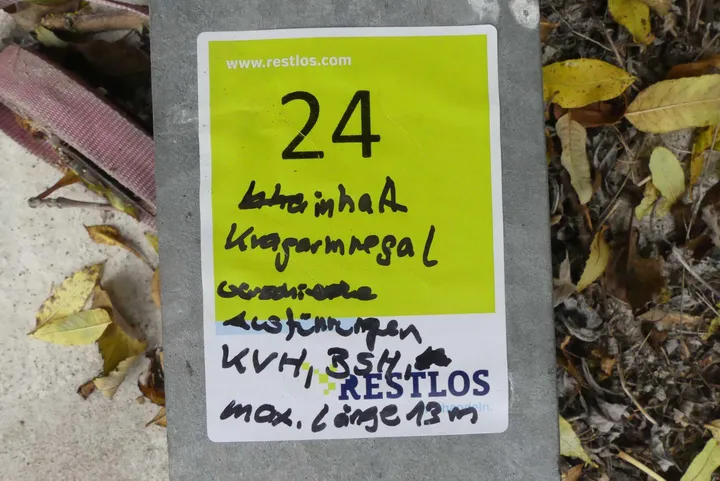 www.restlos.com
24
inhalt
Kragarmregal
verschiedene
Ausführungen
KVH, BSH,
RESTLOS
handeln.
max. Länge 13m